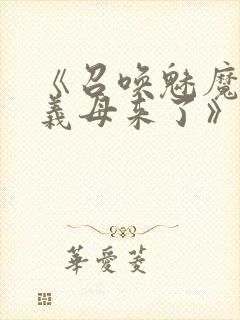 《召唤魅魔
義母来了》
華愛菱